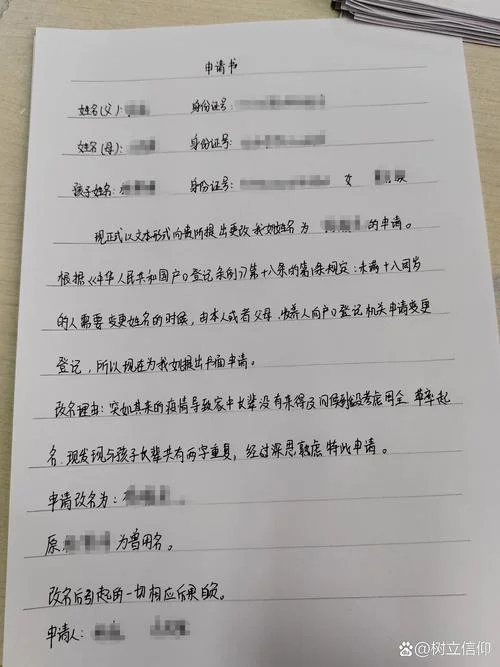 申请书
姓名(父): 身份证号:
姓名(母): 身份证号:
孩子姓名: 身份证号: 女 汉族
现正式以文本形式向贵所提出更改我女姓名为 的申请。
根据《中华人民共和国户口登记条例》第十八条的第1条规定:未满十八周岁
的人需要变更姓名的时候,由本人或者父母、收养人向户口登记机关申请变更
登记,所以现在为我女提出书面申请。
改名理由:突如其来的疫情导致家中长辈没有来得及 考虑周全 草率起
名,现发现与孩子长辈共有两字重复,经过深思熟虑,特此申请。
申请改名为:
原 为曾用名。
改名后引起的一切相应后果自负。
申请人:
@树立信仰